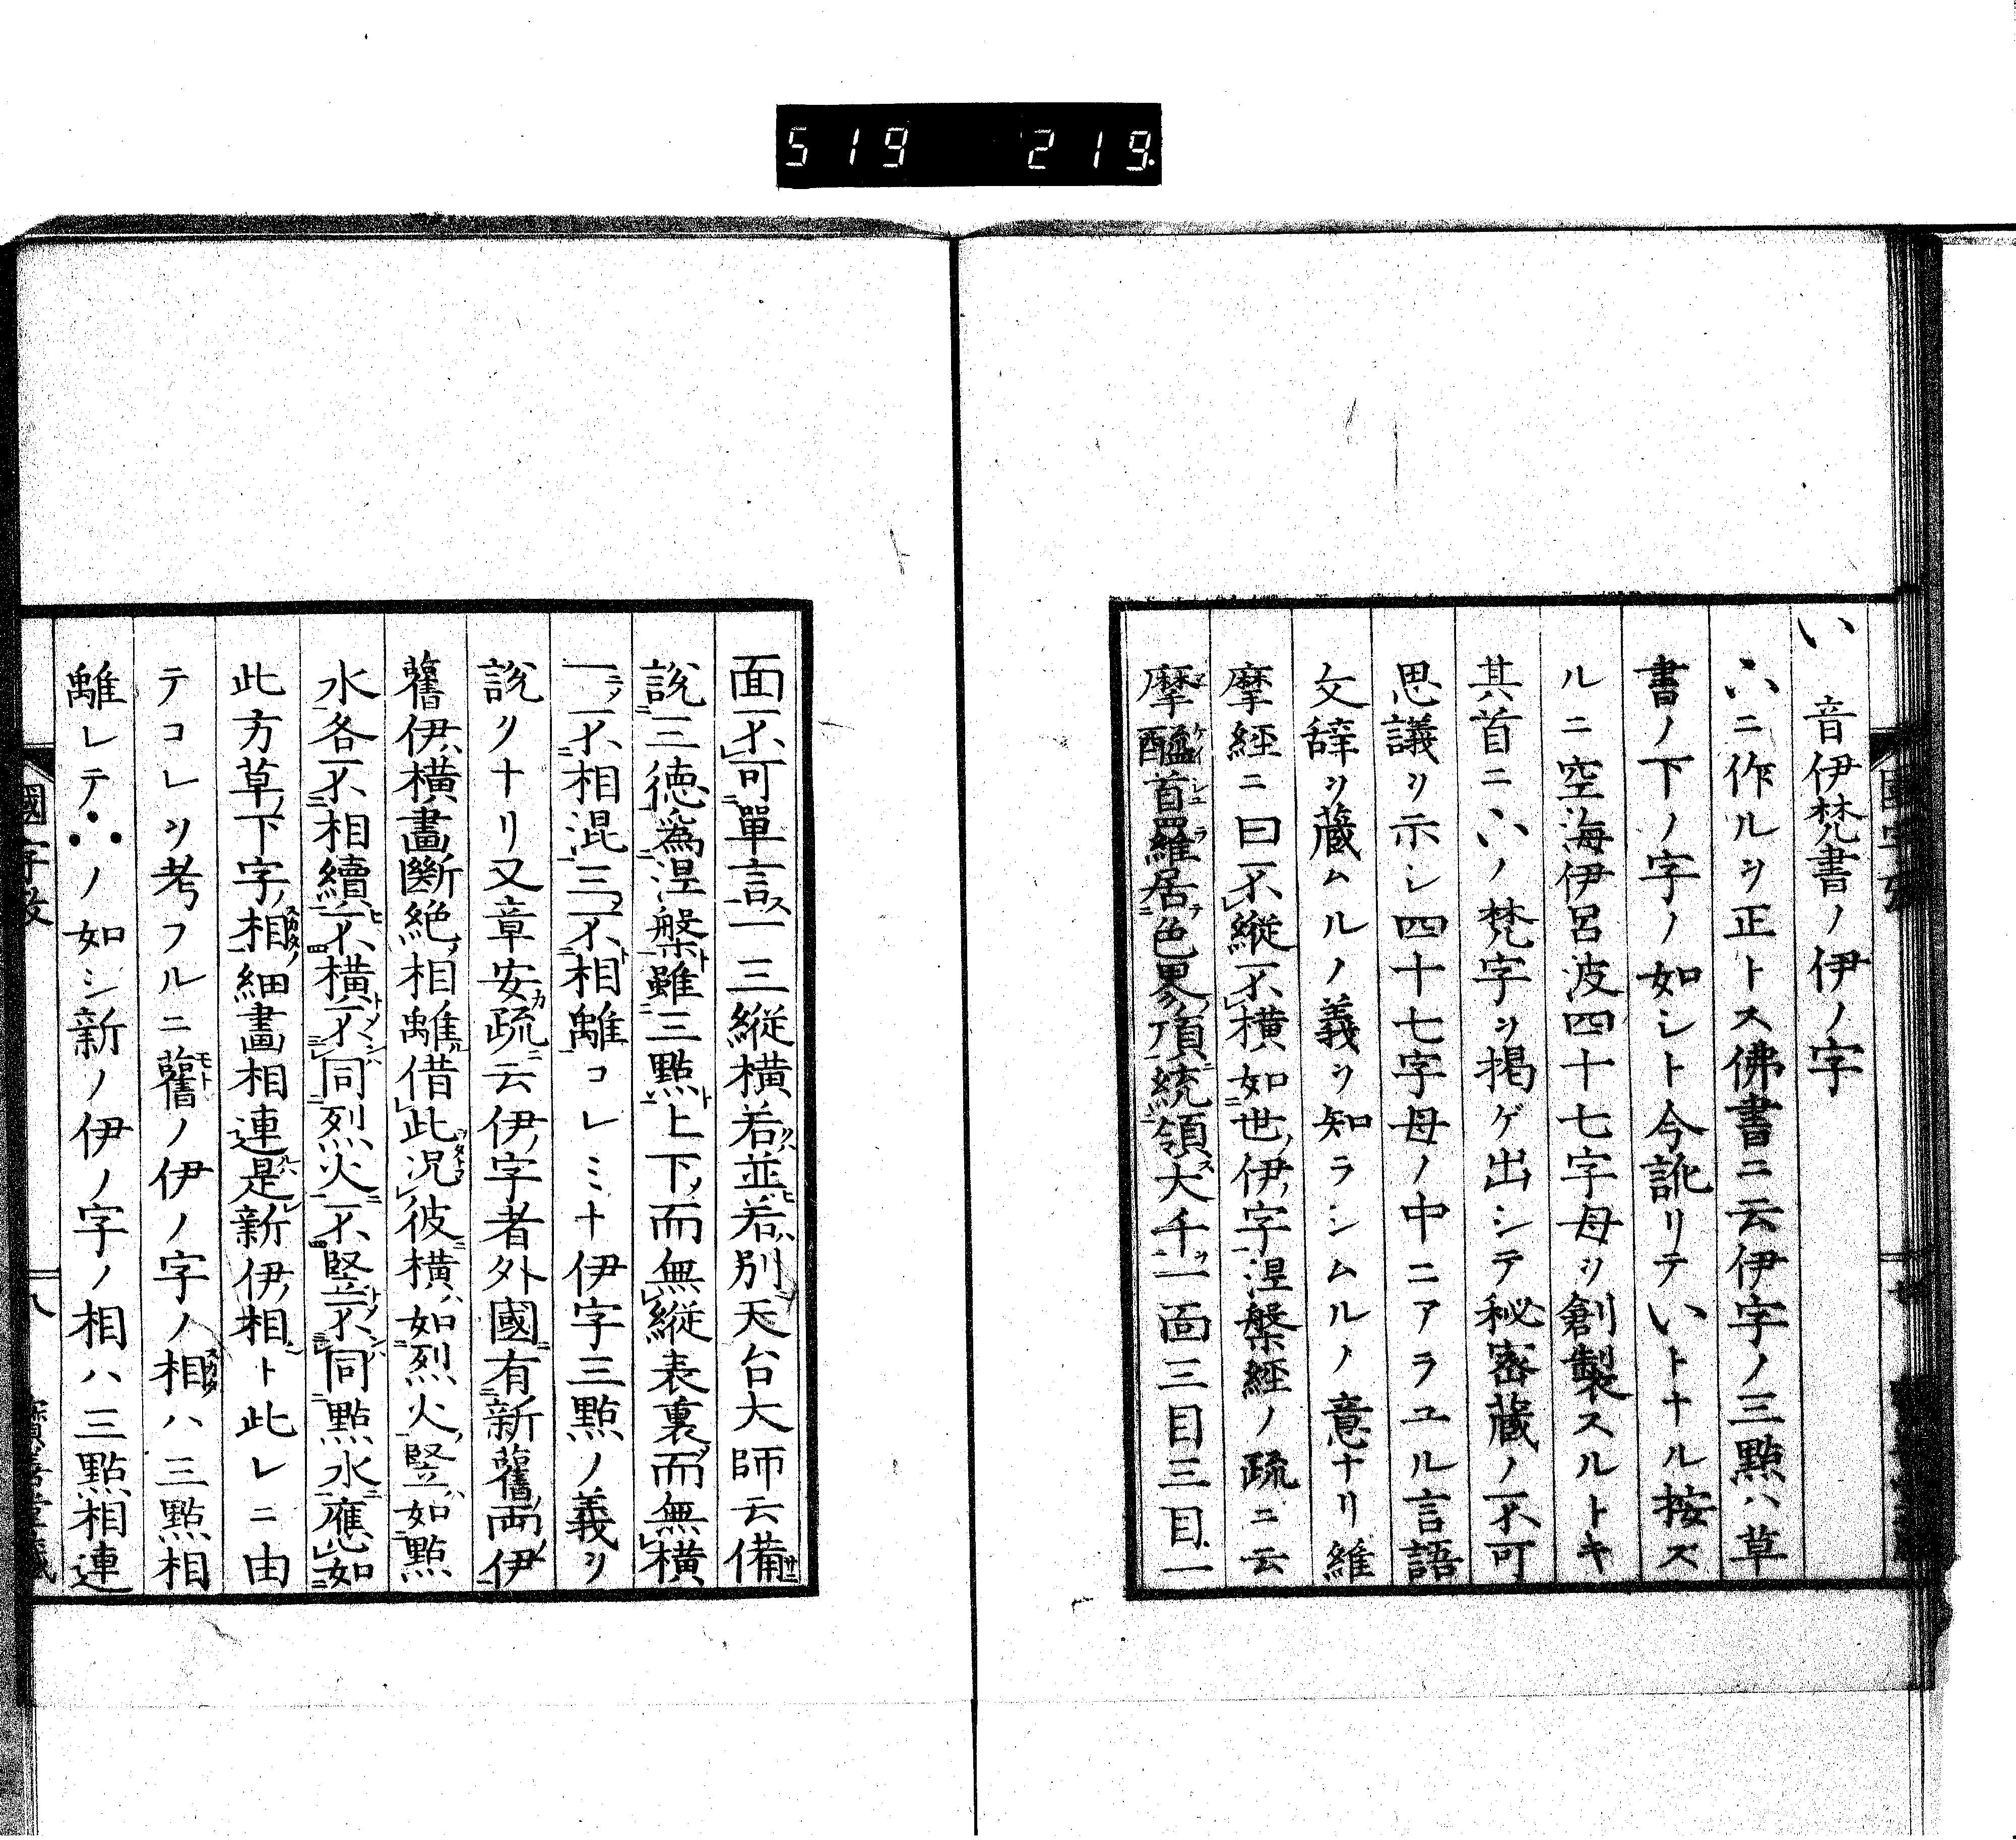 519 219.
い 音伊梵書ノ伊ノ字
∴ニ作ルヲ正トス佛書ニ云伊字ノ三點ハ草
書ノ下ノ字ノ如シト今訛リテいトナル按ズ
ルニ空海伊呂波四十七字母ヲ創製スルトキ
其首ニ∴ノ梵字ヲ掲ゲ出シテ秘密蔵ノ不可
思議ヲ示シ四十七字母ノ中ニアラユル言語
文辞ヲ蔵ムルノ義ヲ知ラシムルノ意ナリ維
摩經ニ曰不縦不横如世伊字涅槃經ノ疏ニ云
摩醯首羅居色界頂統領大千一面三目三目一
面不可單言一三縦横若並若別天台大師云備
説三徳為涅槃雖三點上下而無縦表裏而無横
一不相混三不相離コレミナ伊字三點ノ義ヲ
説クナリ又章安疏云伊字者外國有新舊兩伊
舊伊横畫斷絶相離借此況彼横如烈火竪如點
水各不相續不横不同烈火不竪不同點水應如
此方草下字相細畫相連是新伊相ト此レニ由
テコレヲ考フルニ舊ノ伊ノ字ノ相ハ三點相
離レテ∴ノ如シ新ノ伊ノ字ノ相ハ三點相連
國字攷
十八